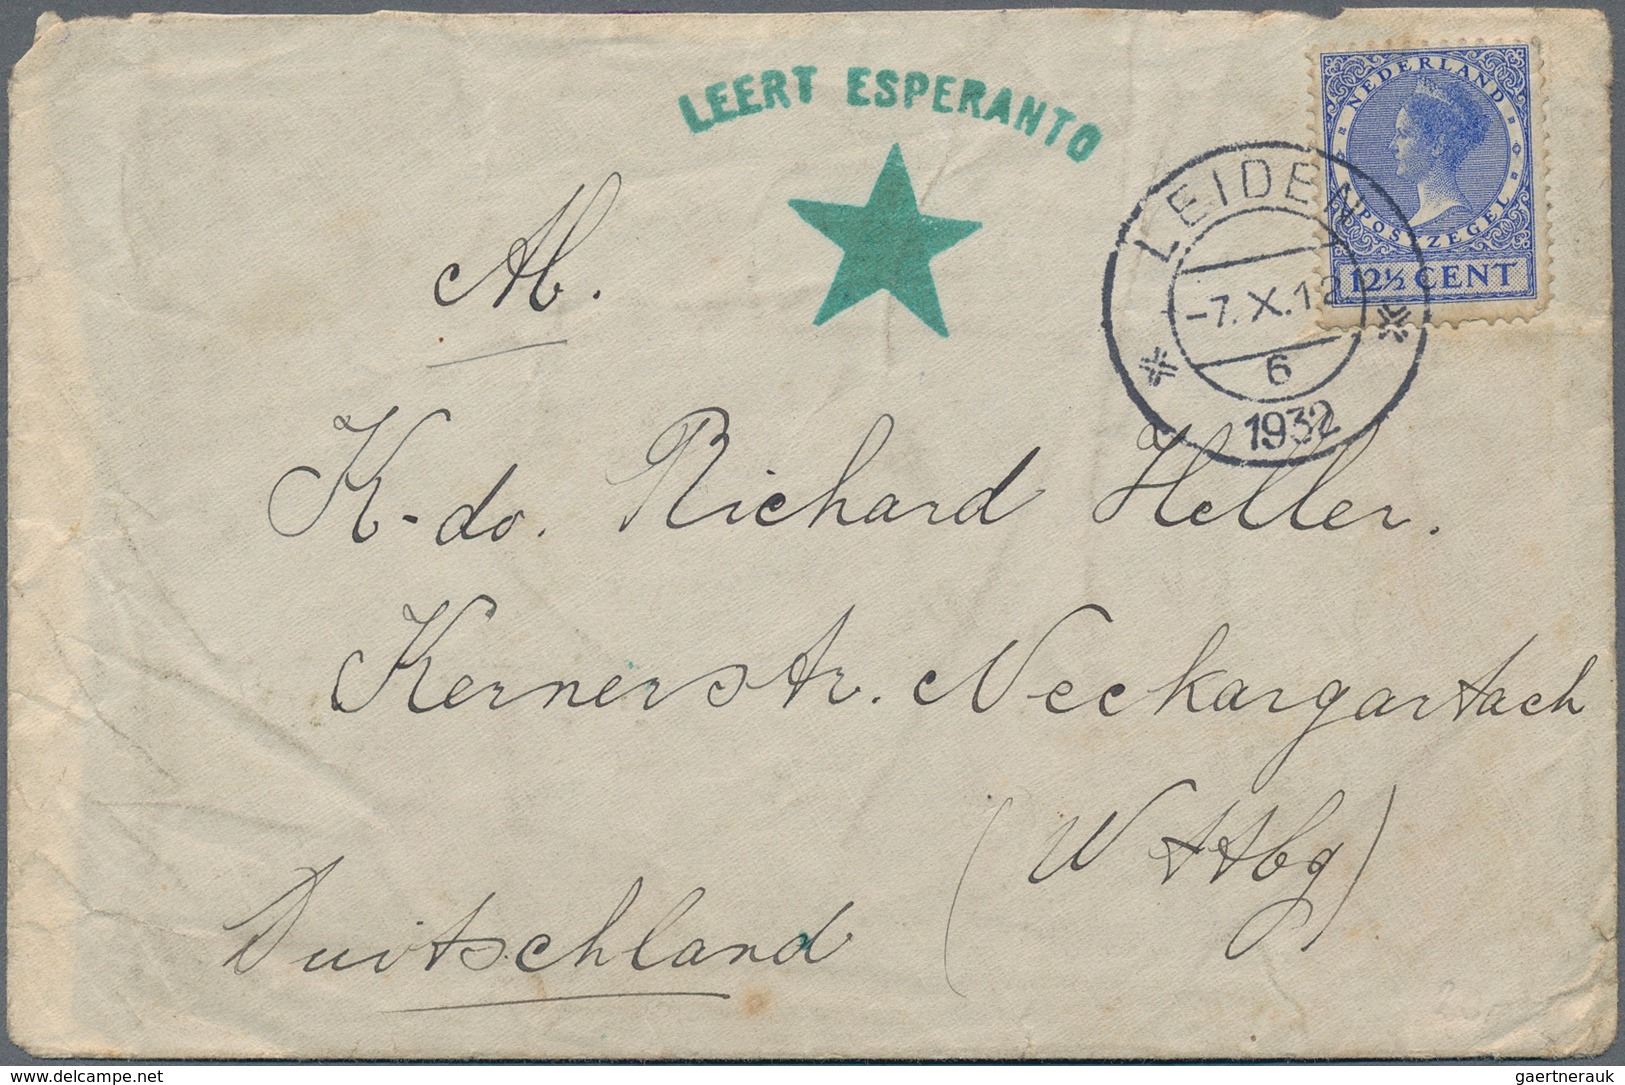 LEERT ESPERANTO
NEDERLAND
POSTZEGEL
12½ CENT
LEIDEN
-7.X.12
6
1932
Al.
K-do. Richard Heller.
Kernerstr. Neckargartach
(Wttbg)
Duitschland
delcampe.net
gaertnerauk